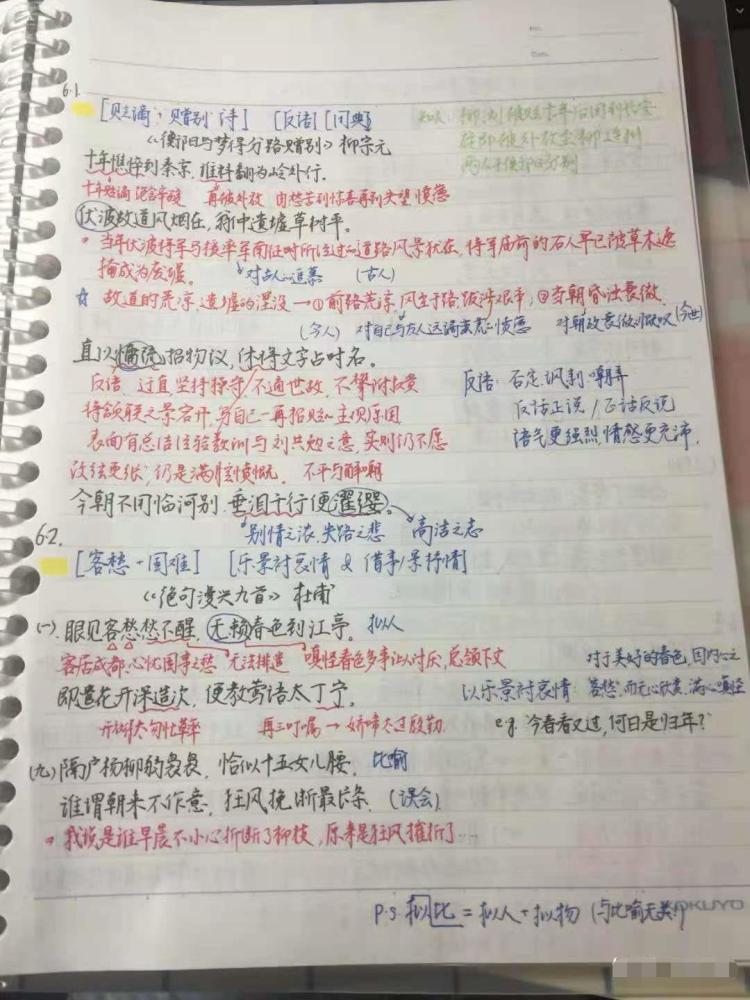 6.1.
[贬谪、赠别 诗] [反语] [用典]
知识: 柳 刘 被贬十年后回到长安
旋即被外放至柳 连州
两人于衡阳分别
《衡阳与梦得分路赠别》柳宗元
十年憔悴到秦京, 谁料翻为岭外行.
十年贬谪 饱含辛酸 再被外放 由愁苦到惊喜再到失望 愤懑
伏波故道风烟在, 翁仲遗墟草树平.
当年伏波将军马援率军南征时所经过的道路风景犹在, 将军庙前的石人早已被草木遮
掩成为废墟.
对古人心追慕 (古人)
☆ 故道的荒凉, 遗墟的湮没 → ① 前路荒凉, 风尘于路, 跋涉艰辛; ② 当朝 衰微.
(今人) 对自己与友人远谪蛮荒的愤懑 对朝政衰微的慨叹 (今世)
直以慵疏招物议, 休将文字占时名.
反语 过直 坚持操守 不通世故, 不攀附权贵 反语: 否定、讽刺、嘲弄
将颔联之景宕开, 写自己一再招贬的主观原因 反话正说 / 正话反说
表面有总结经验教训与刘共勉之意, 实则仍不愿 语气更强烈, 情感更充沛.
改弦更张, 仍是满腔愤慨. 不平与自嘲
今朝不用临河别, 垂泪千行便濯缨.
别情之浓, 失路之悲 高洁之志
6.2.
[客愁 + 国难] [乐景衬哀情 & 借事/景抒情]
《绝句漫兴九首》杜甫
(一). 眼见客愁愁不醒, 无赖春色到江亭. 拟人
客居成都, 心忧国事之愁 无法排遣 嗔怪春色多事让人讨厌, 总领下文 对于美好的春色, 因内心之
即遣花开深造次, 便教莺语太丁宁. 以乐景衬哀情: 客愁, 而无心欣赏, 满心嗔怪
开得太匆忙草率 再三叮嘱 → 娇啼太过殷勤 e.g. 今春看又过, 何日是归年?
(九) 隔户杨柳弱袅袅, 恰似十五女儿腰. 比喻
谁谓朝来不作意, 狂风挽断最长条. (误会)
我须是谁早晨不小心折断了柳枝, 原来是狂风摧折了…
P.S. 拟比 = 拟人 + 拟物 (与比喻无关!)
KOKUYO